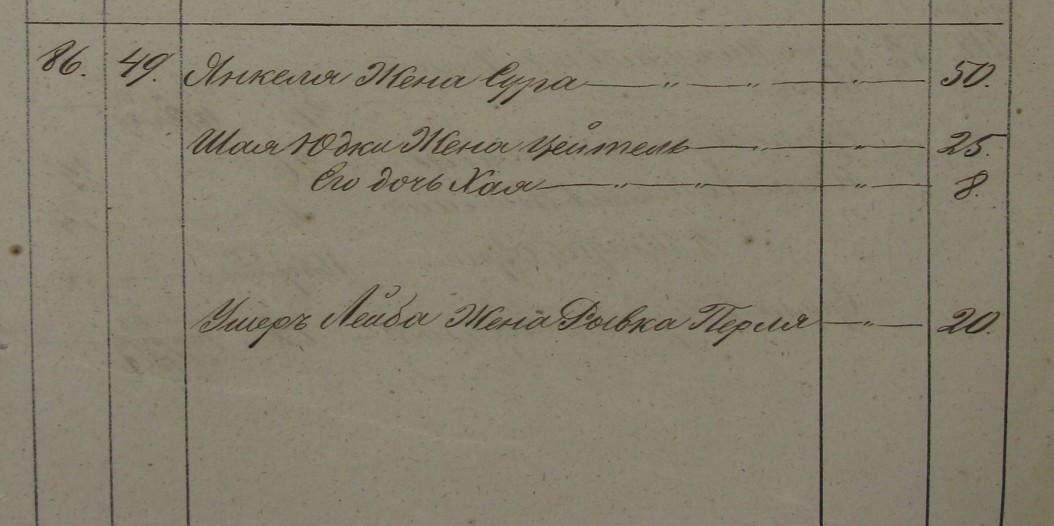 86. 49. Янкеля Жена Сура — „ — „ — „ — 50.
Шая Юдки Жена Цейтель — „ — „ — 25.
Его дочь Хая — „ — „ — „ — 8.
Ушеръ Лейба Жена Рывка Перля — „ — 20.